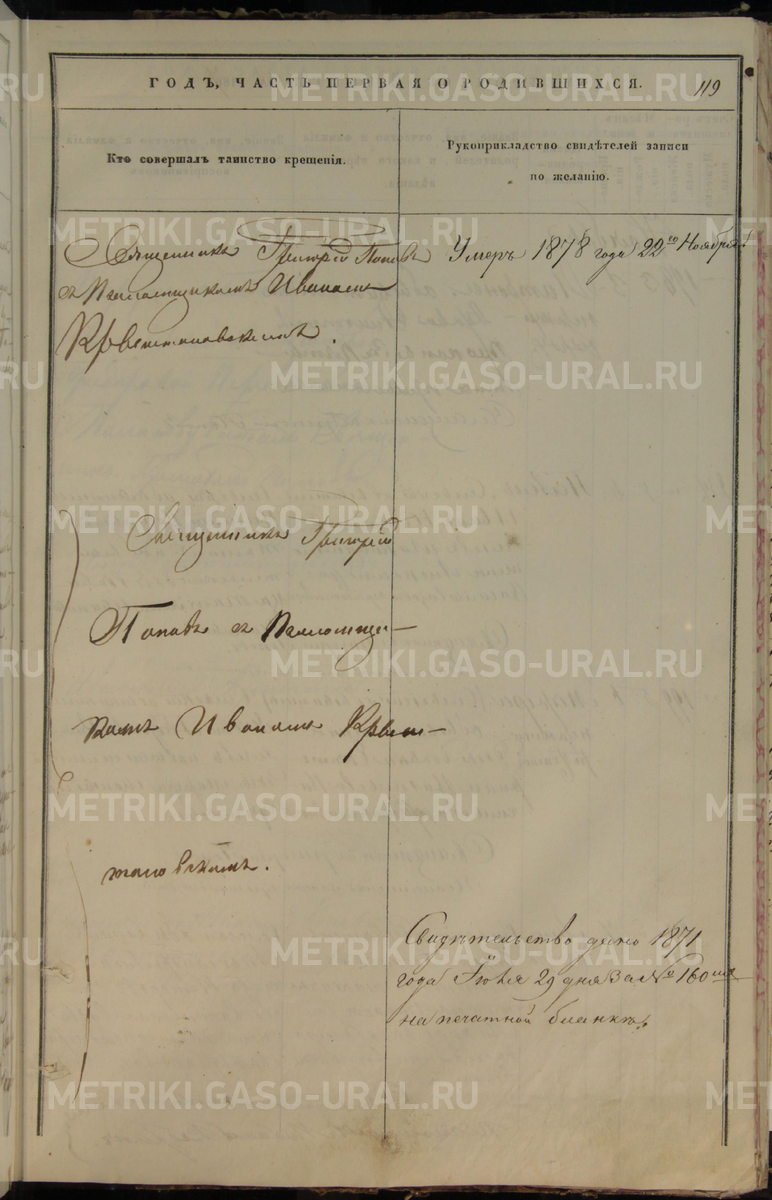 ГОДЪ, ЧАСТЬ ПЕРВАЯ О РОДИВШИХСЯ.
119
Кто совершалъ таинство крещенія.
Рукоприкладство свидѣтелей записи
по желанію.
Священникъ Григорій Поповъ
съ Псаломщикомъ Иваномъ
Умеръ 1878 года 22го Ноября
Священникъ Григорій
Поповъ съ Псаломщи-
комъ Иваномъ
Свидѣтельство дано 1871
года Іюля 29 дня за № 160
на печатной бланкѣ.
METRIKI.GASO-URAL.RU